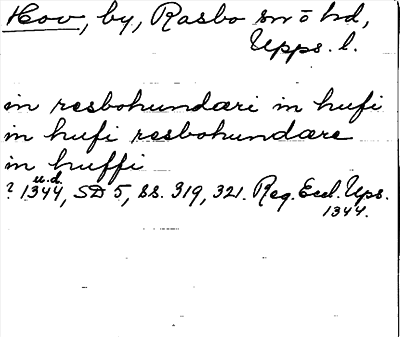 Hov, by, Rasbo sn o hd,
Upps. l.
in resbohundæri in hufi
in hufi resbohundære
in huffi
u.d.
? 1344, SD 5, ss. 319, 321. Reg. Eccl. Ups.
1344.